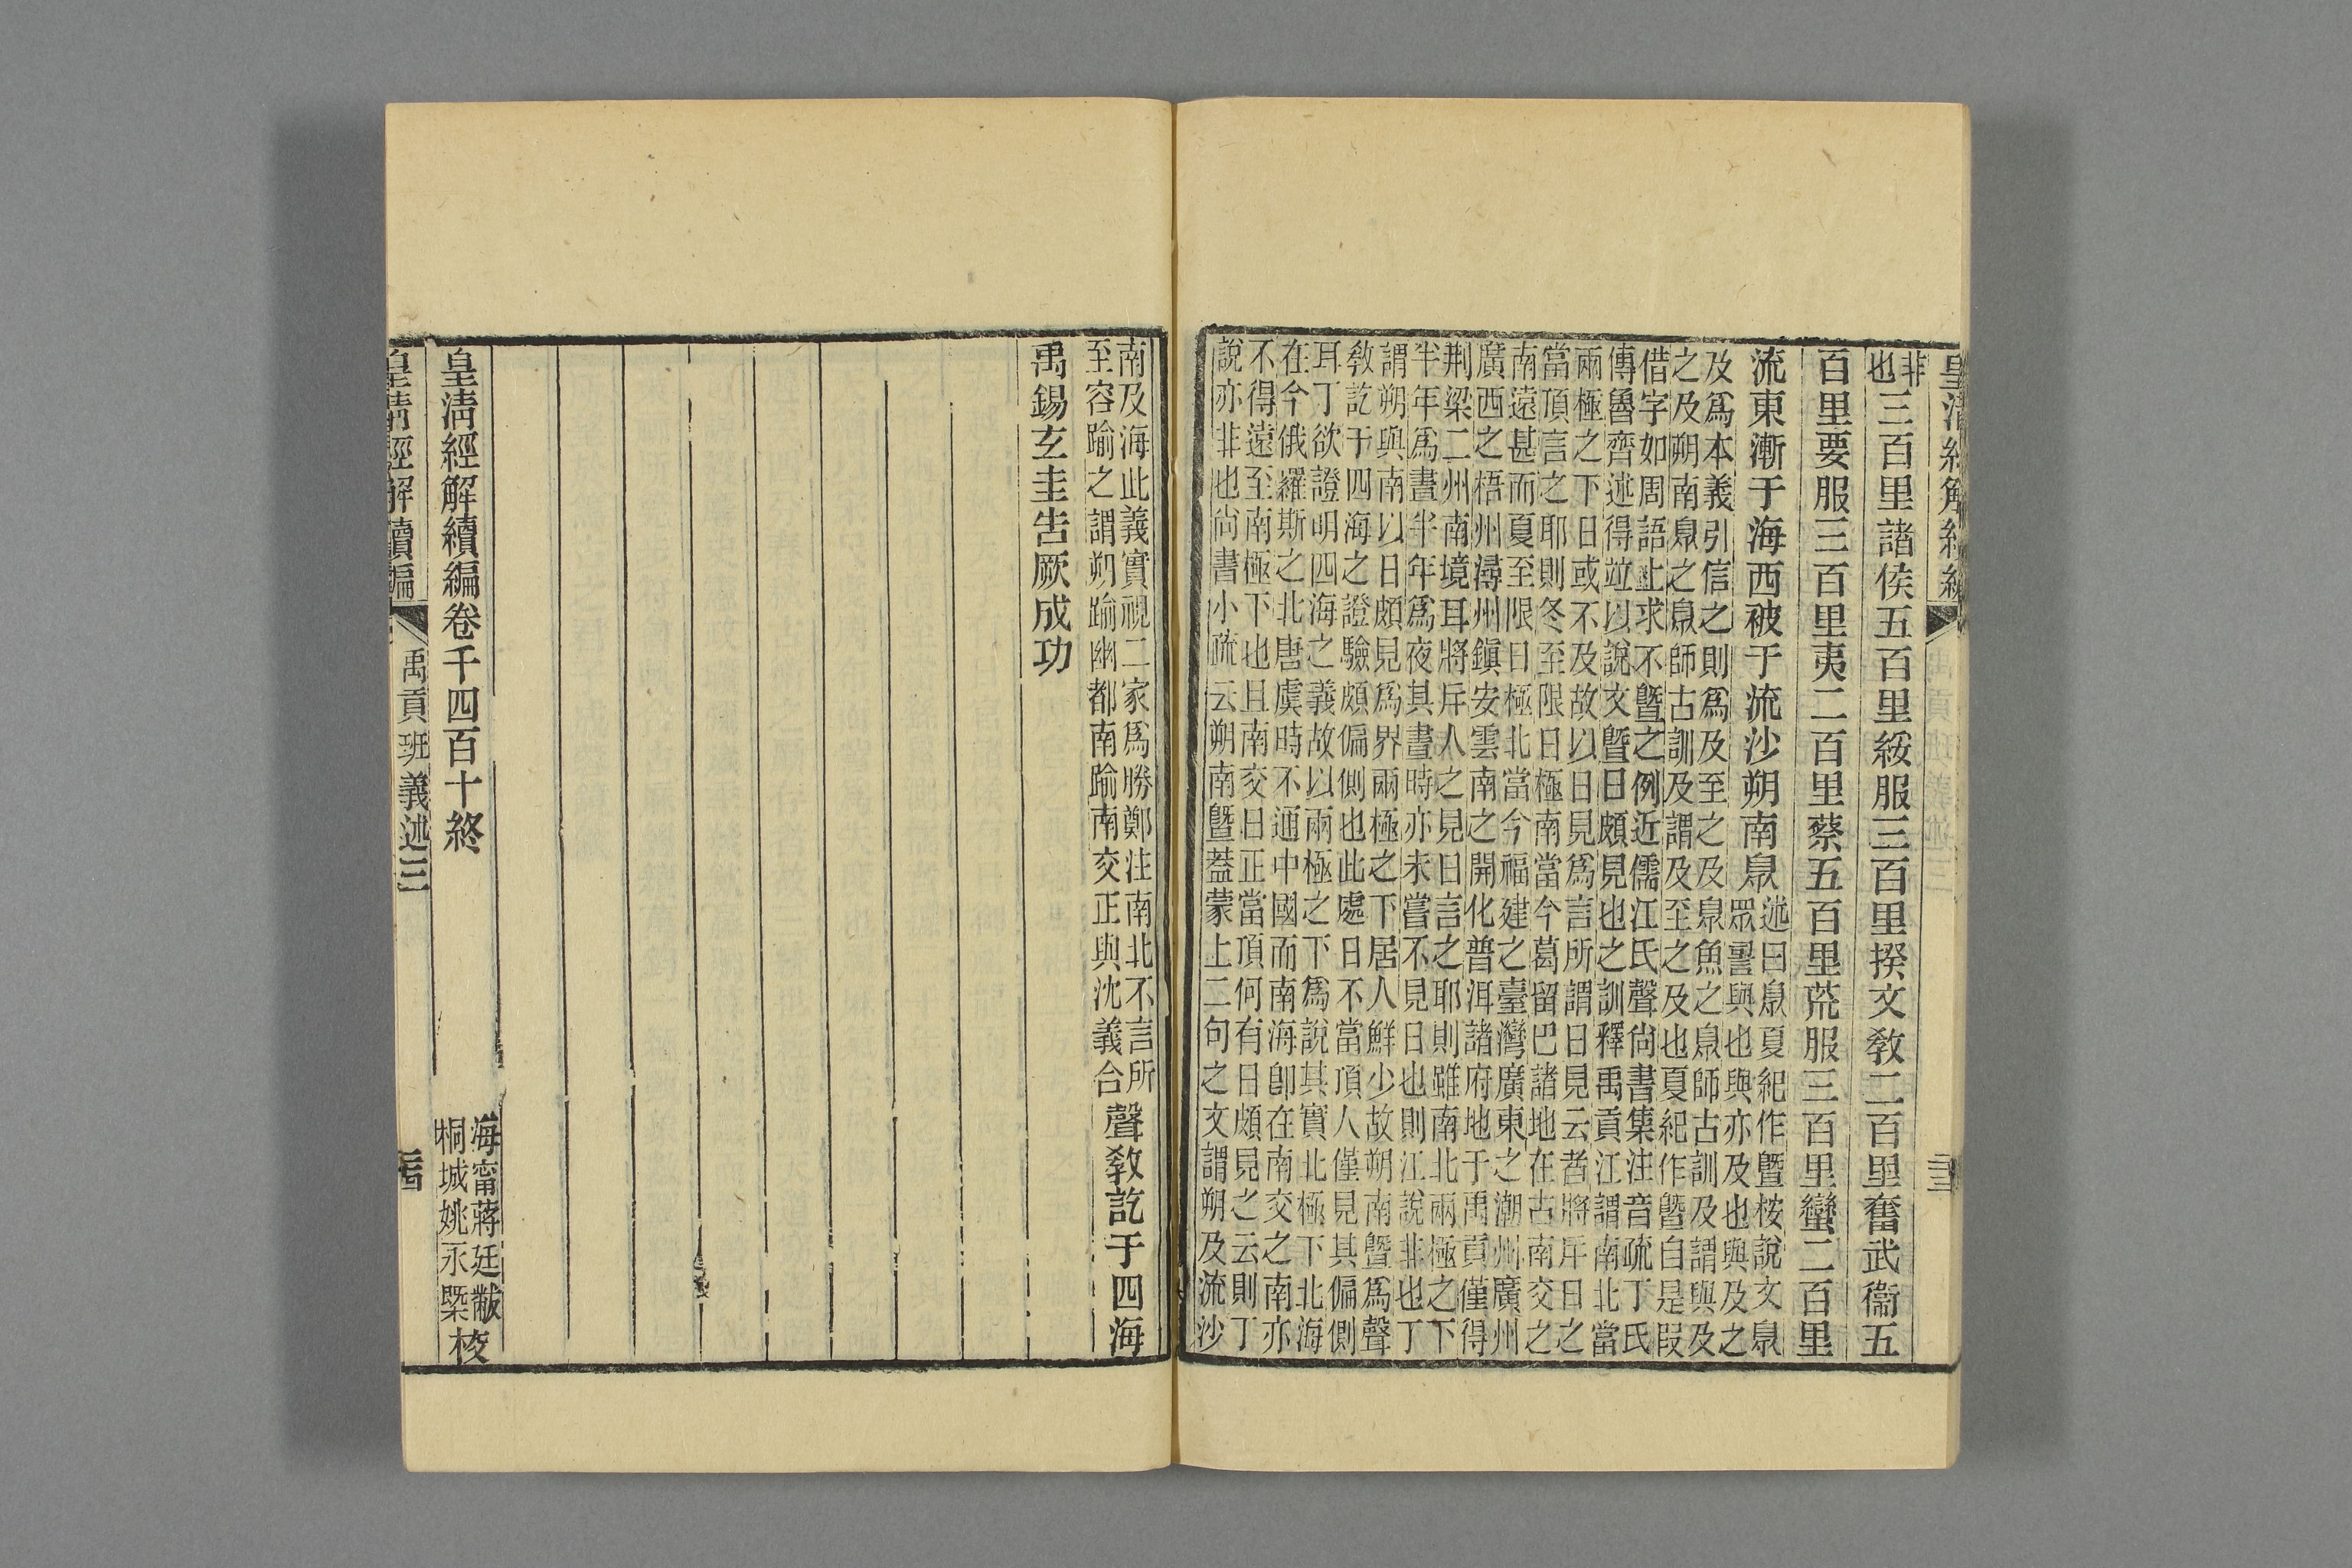 皇清經解續編
非
也
三百里諸侯五百里綏服三百里揆文敎二百里奮武衞五
百里要服三百里夷二百里蔡五百里荒服三百里蠻二百里
流東漸于海西被于流沙朔南臮
述曰臮夏紀作曁桉說文臮
與也與亦及也與及之
及爲本義引信之則爲及至之及臮魚之臮師古訓及謂與及
之及朔南臮之臮師古訓及謂及至之及也夏紀作曁自是叚
借字如周語上求不曁之例近儒江氏聲尙書集注音疏丁氏
傳魯齊述得竝以說文曁日頗見也之訓釋禹貢江謂南北當
兩極之下日或不及故以日見爲言所謂日見云者將斥日之
當頂言之耶則冬至限日極南當今葛留巴諸地在古南交之
南遠甚而夏至限日極北當今福建之臺灣廣東之潮州廣州
廣西之梧州潯州鎭安雲南之開化普洱諸府地于禹貢僅得
荆梁二州南境耳將斥人之見日言之耶則雖南北兩極之下
半年爲晝半年爲夜其晝時亦未嘗不見日也則江說非也丁
謂朔與南以日頗見爲界兩極之下居人鮮少故朔南曁爲聲
敎訖于四海之證驗頗偏側也此處日不當頂人僅見其偏側
耳丁欲證明四海之義故以兩極之下爲說其實北極下北海
在今俄羅斯之北唐虞時不通中國而南海卽在南交之南亦
不得遠至南極下也且南交日正當頂何有日頗見之云則丁
說亦非也尙書小疏云朔南曁蓋蒙上二句之文謂朔及流沙
南及海此義實視二家爲勝鄭注南北不言所
至容踰之謂朔踰幽都南踰南交正與沈義合
聲敎訖于四海
禹錫玄圭告厥成功
皇清經解續編卷千四百十終
海甯蔣廷黻
桐城姚永槩
校
皇清經解續編
禹貢班義述三